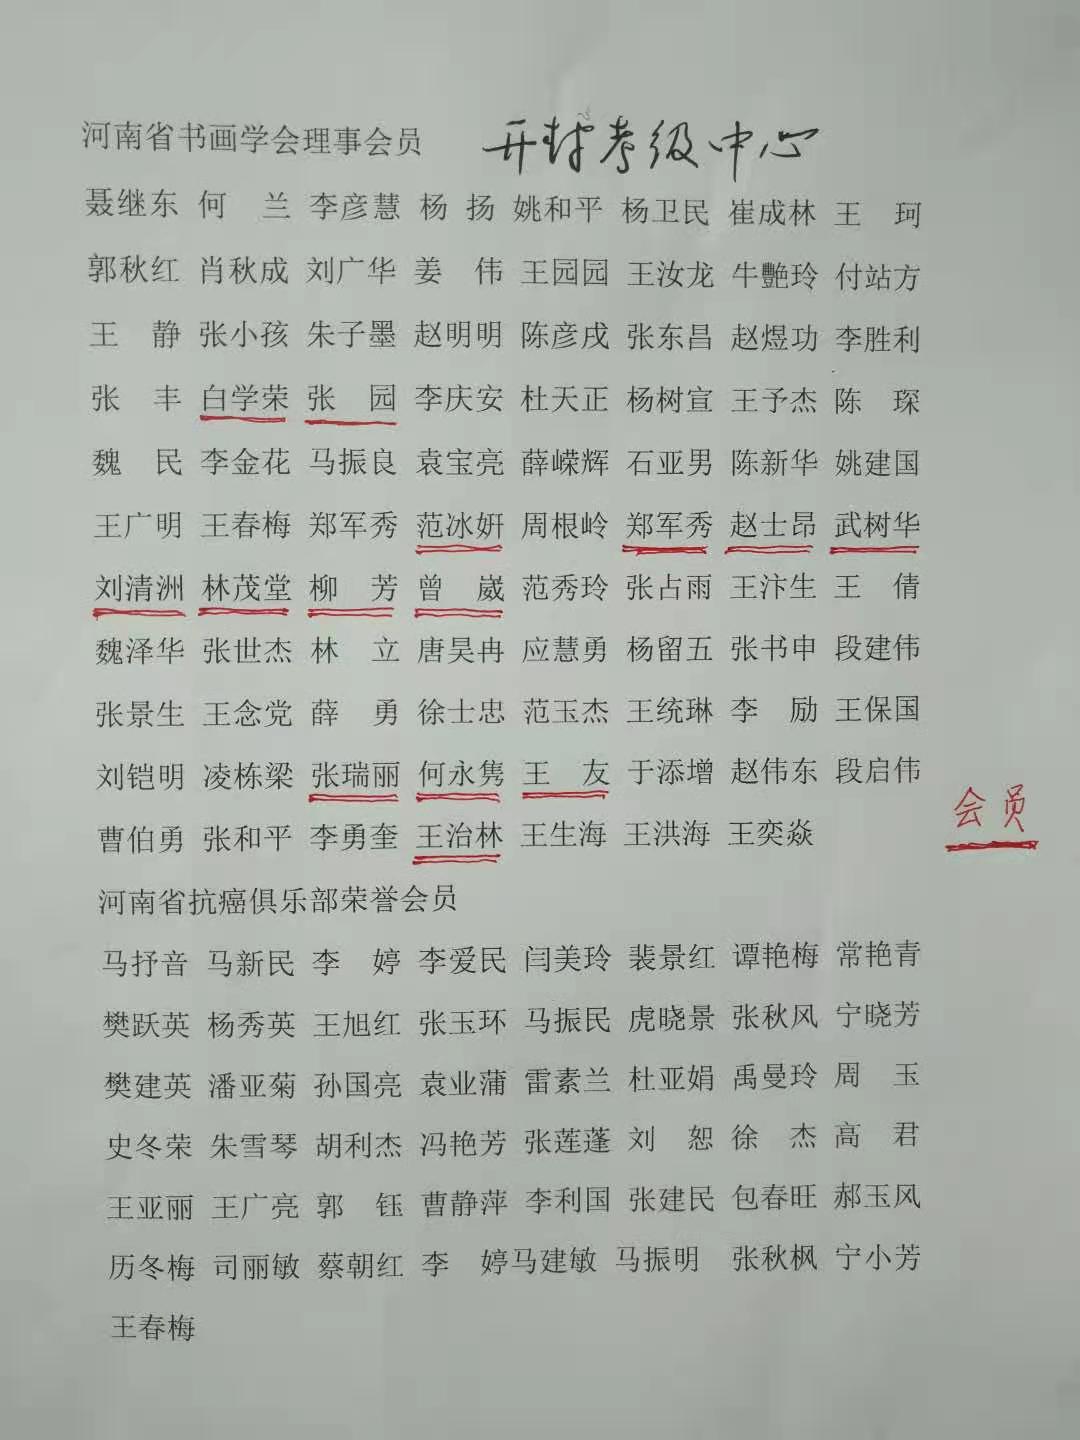 河南省书画学会理事会员 开封考级中心
聂继东 何 兰 李彦慧 杨 扬 姚和平 杨卫民 崔成林 王 珂
郭秋红 肖秋成 刘广华 姜 伟 王园园 王汝龙 牛艷玲 付站方
王 静 张小孩 朱子墨 赵明明 陈彦戌 张东昌 赵煜功 李胜利
张 丰 白学荣 张 园 李庆安 杜天正 杨树宣 王予杰 陈 琛
魏 民 李金花 马振良 袁宝亮 薛嵘辉 石亚男 陈新华 姚建国
王广明 王春梅 郑军秀 范冰妍 周根岭 郑军秀 赵士昂 武树华
刘清洲 林茂堂 柳 芳 曾 崴 范秀玲 张占雨 王汴生 王 倩
魏泽华 张世杰 林 立 唐昊冉 应慧勇 杨留五 张书申 段建伟
张景生 王念党 薛 勇 徐士忠 范玉杰 王统琳 李 励 王保国
刘铠明 凌栋梁 张瑞丽 何永隽 王 友 于添增 赵伟东 段启伟
曹伯勇 张和平 李勇奎 王治林 王生海 王洪海 王奕焱
会员
河南省抗癌俱乐部荣誉会员
马抒音 马新民 李 婷 李爱民 闫美玲 裴景红 谭艳梅 常艳青
樊跃英 杨秀英 王旭红 张玉环 马振民 虎晓景 张秋风 宁晓芳
樊建英 潘亚菊 孙国亮 袁业蒲 雷素兰 杜亚娟 禹曼玲 周 玉
史冬荣 朱雪琴 胡利杰 冯艳芳 张莲蓬 刘 恕 徐 杰 高 君
王亚丽 王广亮 郭 钰 曹静萍 李利国 张建民 包春旺 郝玉风
历冬梅 司丽敏 蔡朝红 李 婷马建敏 马振明 张秋枫 宁小芳
王春梅